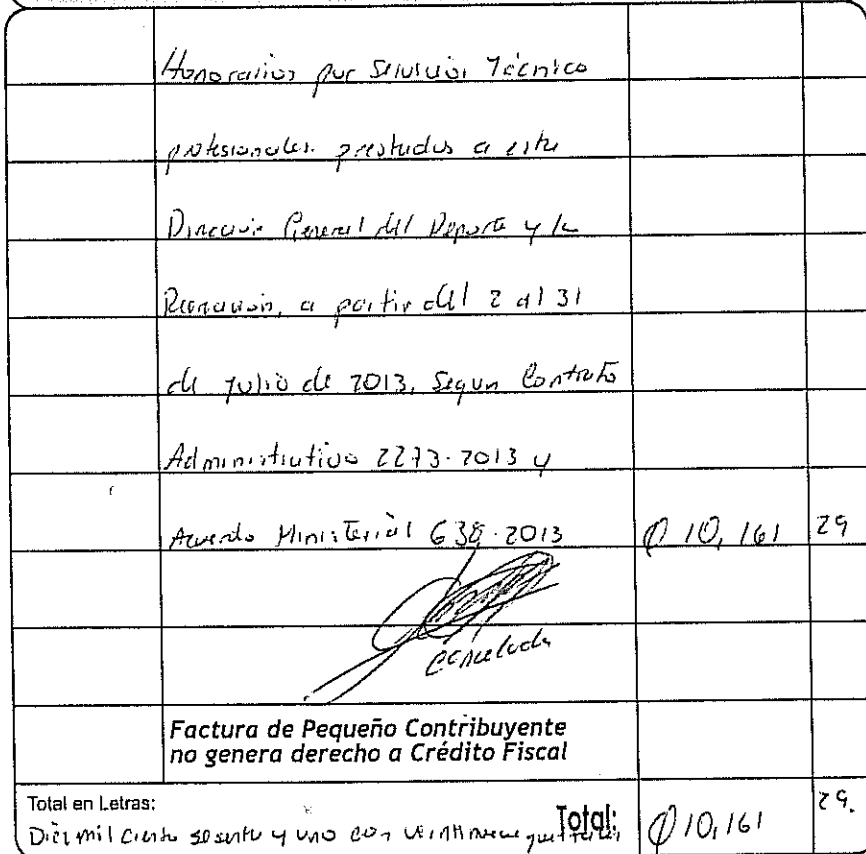 Honorarios por Servicios Técnico
profesionales. prestados a esta
Dirección General del Deporte y la
Recreación, a partir del 2 al 31
de julio de 2013, Segun Contrato
Administrativo 2273-2013 y
Acuerdo Ministerial 638-2013 Q 10,161 29
Cancelada
Factura de Pequeño Contribuyente
no genera derecho a Crédito Fiscal
Total en Letras:
Diez mil ciento sesenta y uno con veintinueve quetzales Total: Q 10,161 29.